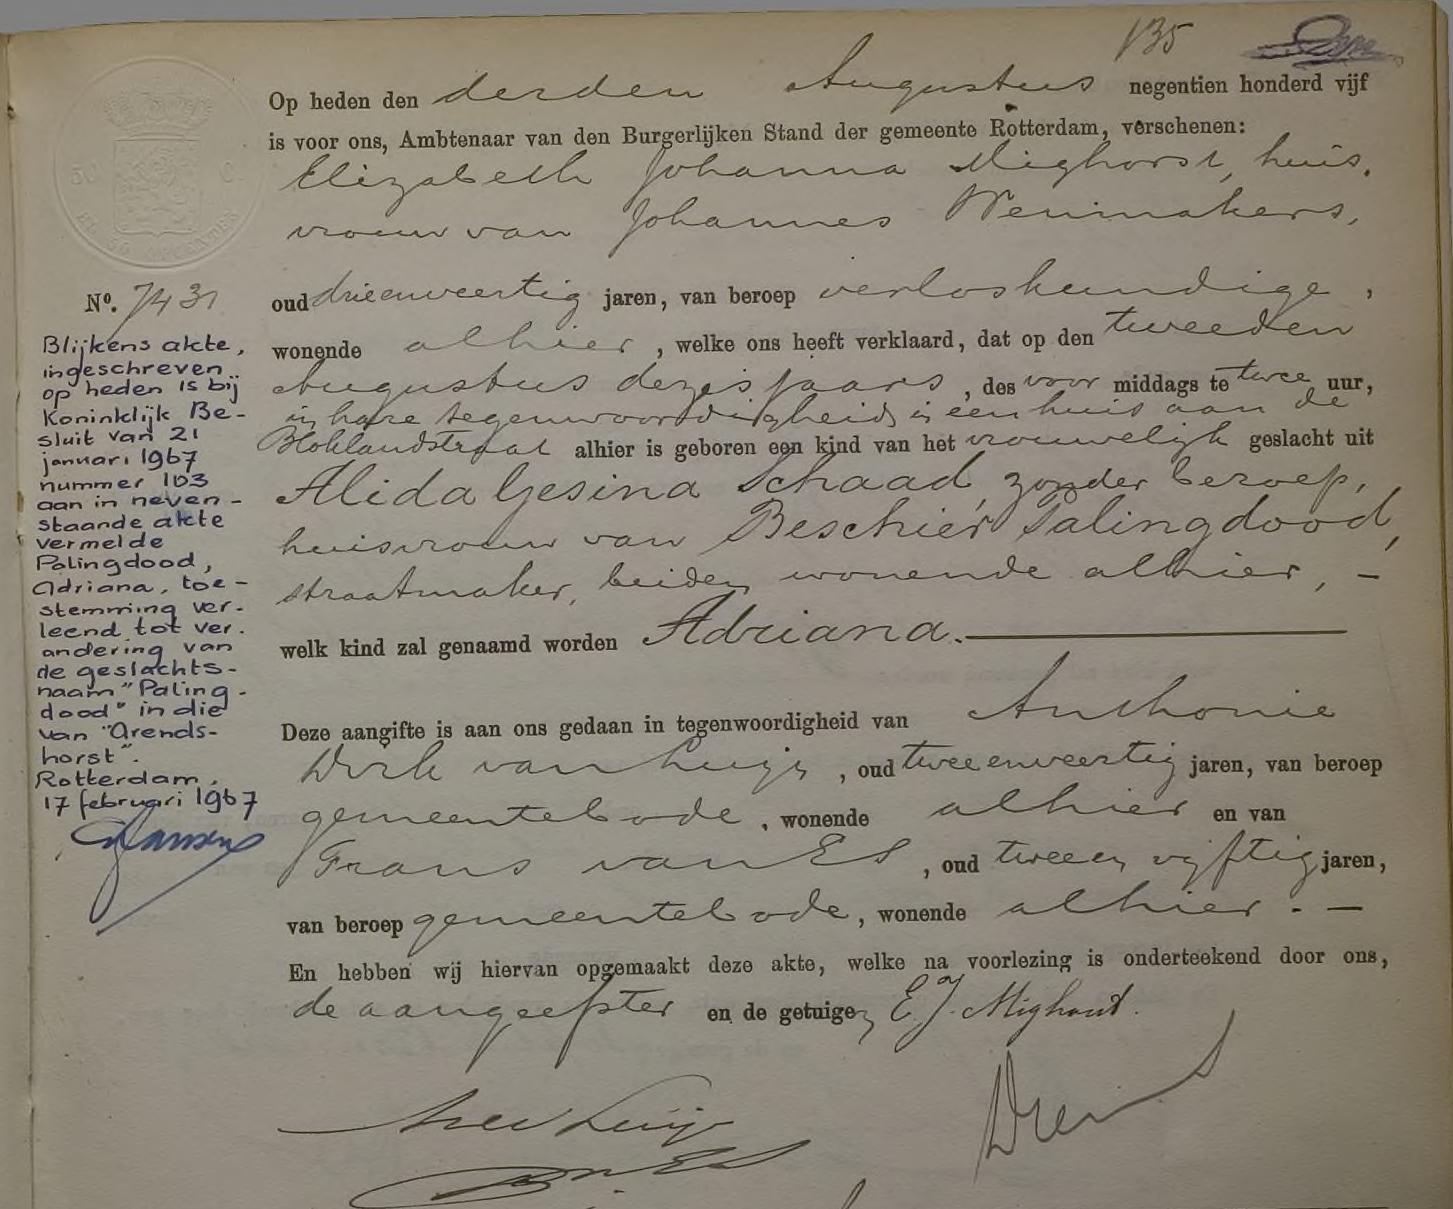 135
Op heden den derden Augustus negentien honderd vijf
is voor ons, Ambtenaar van den Burgerlijken Stand der gemeente Rotterdam, verschenen:
Elizabeth Johanna Mighorst, huis-
vrouw van Johannes Wenmakers,
No. 7431 oud drieenveertig jaren, van beroep verloskundige,
wonende alhier, welke ons heeft verklaard, dat op den tweeden
Augustus dezes jaars, des voor middags te twee uur,
in hare tegenwoordigheid in een huis aan de
Bloklandstraat alhier is geboren een kind van het vrouwelijk geslacht uit
Alida Gesina Schaad, zonder beroep,
huisvrouw van Beschier Palingdood,
straatmaker, beiden wonende alhier, —
welk kind zal genaamd worden Adriana. —
Deze aangifte is aan ons gedaan in tegenwoordigheid van Anthonie
Dirk van Luijn, oud tweeenveertig jaren, van beroep
gemeentebode, wonende alhier en van
Frans van Es, oud tweeen vijftig jaren,
van beroep gemeentebode, wonende alhier. —
En hebben wij hiervan opgemaakt deze akte, welke na voorlezing is onderteekend door ons,
de aangeefster en de getuigen E. J. Mighorst.
Blijkens akte,
ingeschreven
op heden is bij
Koninklijk Be-
sluit van 21
januari 1967
nummer 103
aan in neven-
staande akte
vermelde
Palingdood,
Adriana, toe-
stemming ver-
leend tot ver-
andering van
de geslachts-
naam "Paling-
dood" in die
van "Arends-
horst".
Rotterdam,
17 februari 1967